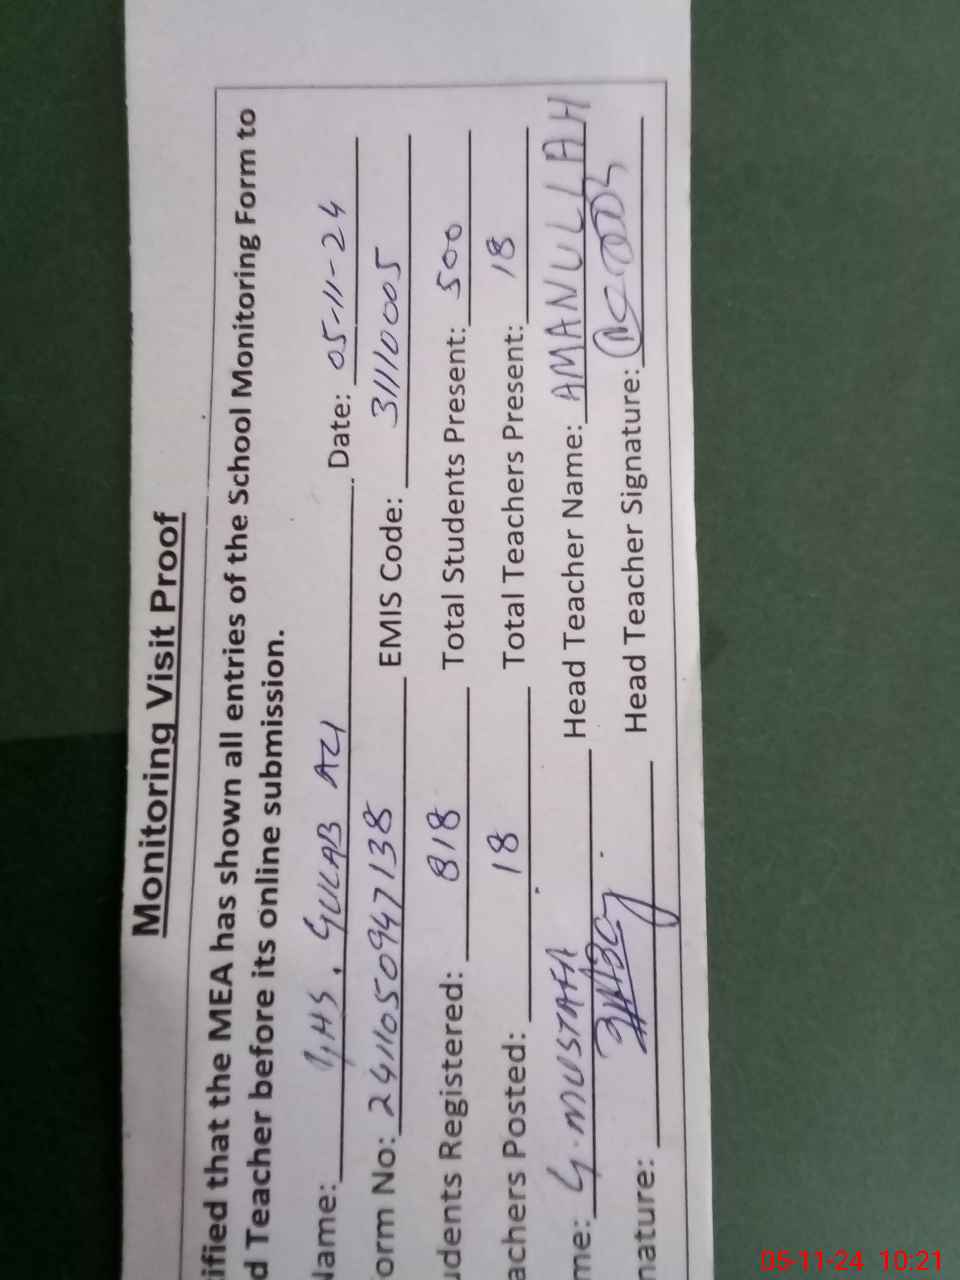 Monitoring Visit Proof
ified that the MEA has shown all entries of the School Monitoring Form to
d Teacher before its online submission.
Name: GHS. GULAB ALI Date: 05-11-24
orm No: 2411050947138 EMIS Code: 31110005
udents Registered: 818 Total Students Present: 500
achers Posted: 18 Total Teachers Present: 18
me: G. MUSTAFA Head Teacher Name: AMANULLAH
nature: Head Teacher Signature:
05-11-24 10:21